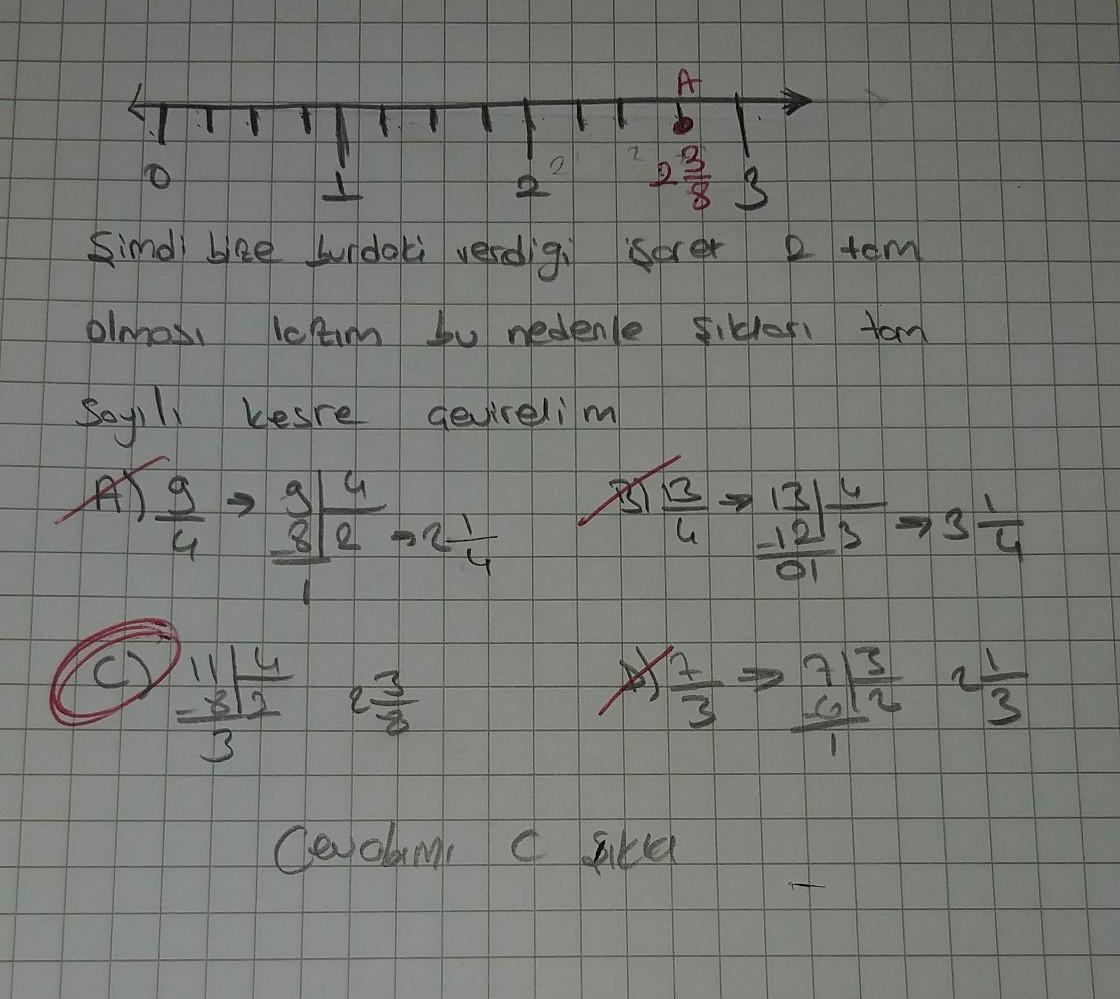 A
0 1 2 2 3/8 3
Şimdi bize burdaki verdiği işaret 2 tam
olması lazım bu nedenle şıkları tam
sayılı kesre çevirelim
A) 9/4 → 9 | 4 8 2 1 → 2 1/4 B) 13/4 → 13 | 4 -12 3 01 → 3 1/4
C) 11 | 4 -8 2 3 2 3/8 D) 7/3 → 7 | 3 -6 2 1 2 1/3
Cevabımı C şıkkı